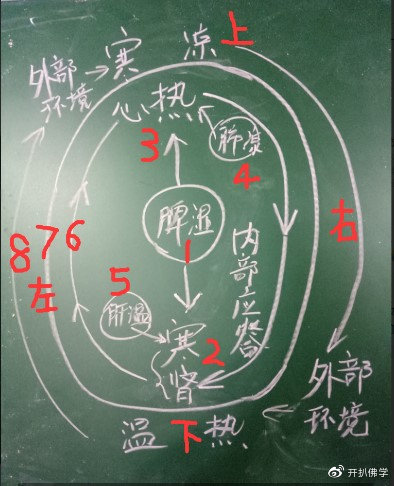 寒 凉 上
外部
环境
心热
肺凉
3
4
脾湿
1
876
左
右
内部应答
5
肝温
寒 2
肾
外部
环境
温 下 热
开扒佛学